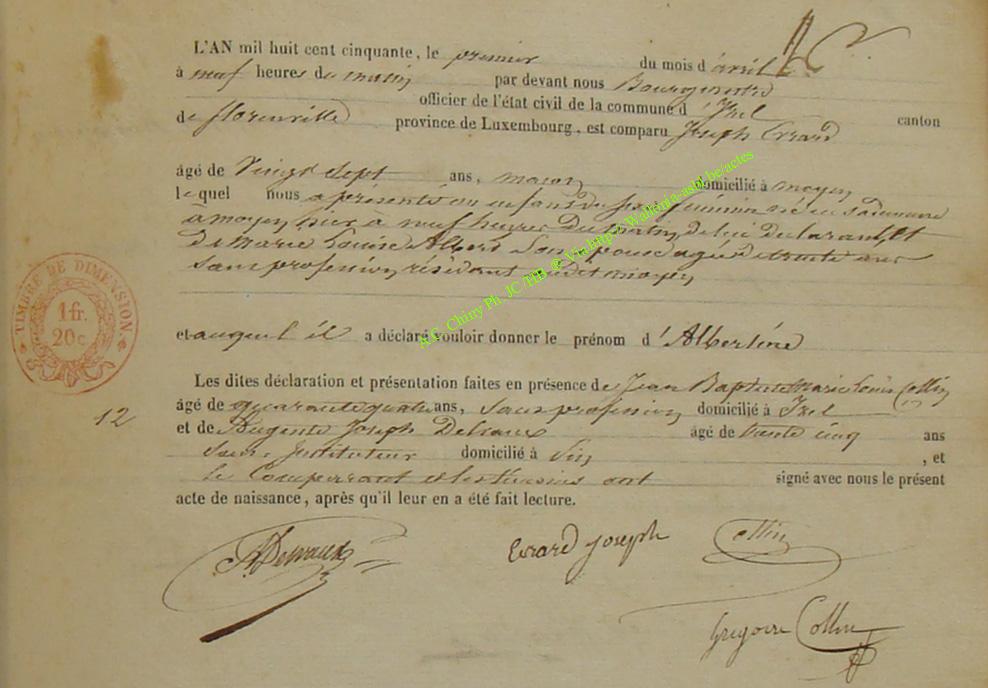 L'AN mil huit cent cinquante, le premier du mois d'avril
à neuf heures du matin par devant nous Bourgmestre
officier de l'état civil de la commune d'Izel canton
de florenville province de Luxembourg, est comparu Joseph Evrard
âgé de Vingt sept ans, maçon domicilié à moyen
lequel nous a présenté un enfant du sexe féminin né en sa demeure
à moyen, hier à neuf heures du matin, de lui déclarant et
de Marie Louise Albert Son épouse agée de trente ans
sans profession, résidant audit moyen
et auquel il a déclaré vouloir donner le prénom d'Albertine
Les dites déclaration et présentation faites en présence de Jean Baptiste Marie Louis Collin
âgé de quarante quatre ans, Sans profession domicilié à Izel
et de Joseph âgé de trente cinq ans
Instituteur domicilié à , et
le Comparant et les témoins ont signé avec nous le présent
acte de naissance, après qu'il leur en a été fait lecture.
Evrard Joseph
Collin
Gregoire Collin
TIMBRE DE DIMENSION.
1 fr.
20 c
12
A.C. Chiny Ph. JC /HB © Via http:// Wallonia-asbl.be/actes